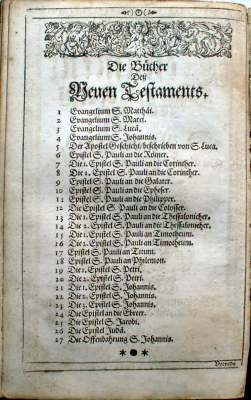 Die Bücher
Deß
Neuen Testaments.
1 Evangelium S. Matthäi.
2 Evangelium S. Marci.
3 Evangelium S. Lucä.
4 Evangelium S. Johannis.
5 Der Apostel Geschicht/beschrieben von S. Luca.
6 Epistel S. Pauli an die Römer.
7 Die 1. Epistel S. Pauli an die Corinther.
8 Die 2. Epistel S. Pauli an die Corinther.
9 Epistel S. Pauli an die Galater.
10 Epistel S. Pauli an die Epheser.
11 Epistel S. Pauli an die Philipper.
12 Die Epistel S. Pauli an die Colosser.
13 Die 1. Epistel S. Pauli an die Thessalonicher.
14 Die 2. Epistel S. Pauli an die Thessalonicher.
15 Die 1. Epistel S. Pauli an Timotheum.
16 Die 2. Epistel S. Pauli an Timotheum.
17 Epistel S. Pauli an Titum.
18 Epistel S. Pauli an Philemon.
19 Die 1. Epistel S. Petri.
20 Die 2. Epistel S. Petri.
21 Die 1. Epistel S. Johannis.
22 Die 2. Epistel S. Johannis.
23 Die 3. Epistel S. Johannis.
24 Die Epistel an die Ebreer.
25 Die Epistel S. Jacobi.
26 Die Epistel Judä.
27 Die Offenbahrung S. Johannis.